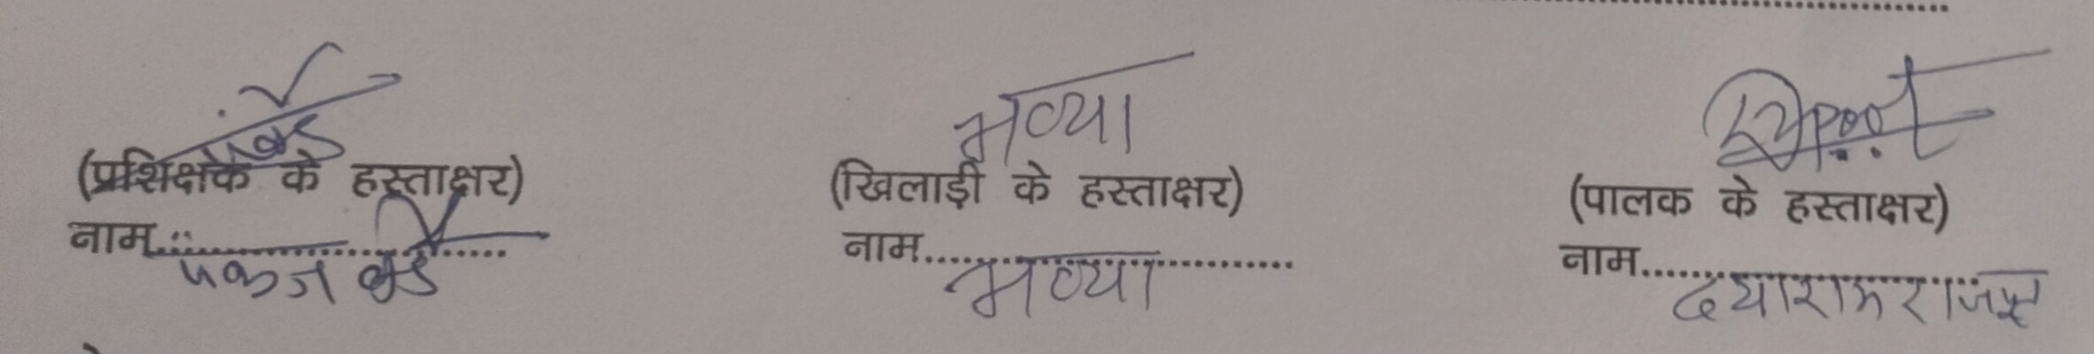 भव्या
(प्रशिक्षक के हस्ताक्षर) (खिलाड़ी के हस्ताक्षर) (पालक के हस्ताक्षर)
नाम पंकज नाम भव्या नाम दयाराम राजपूत